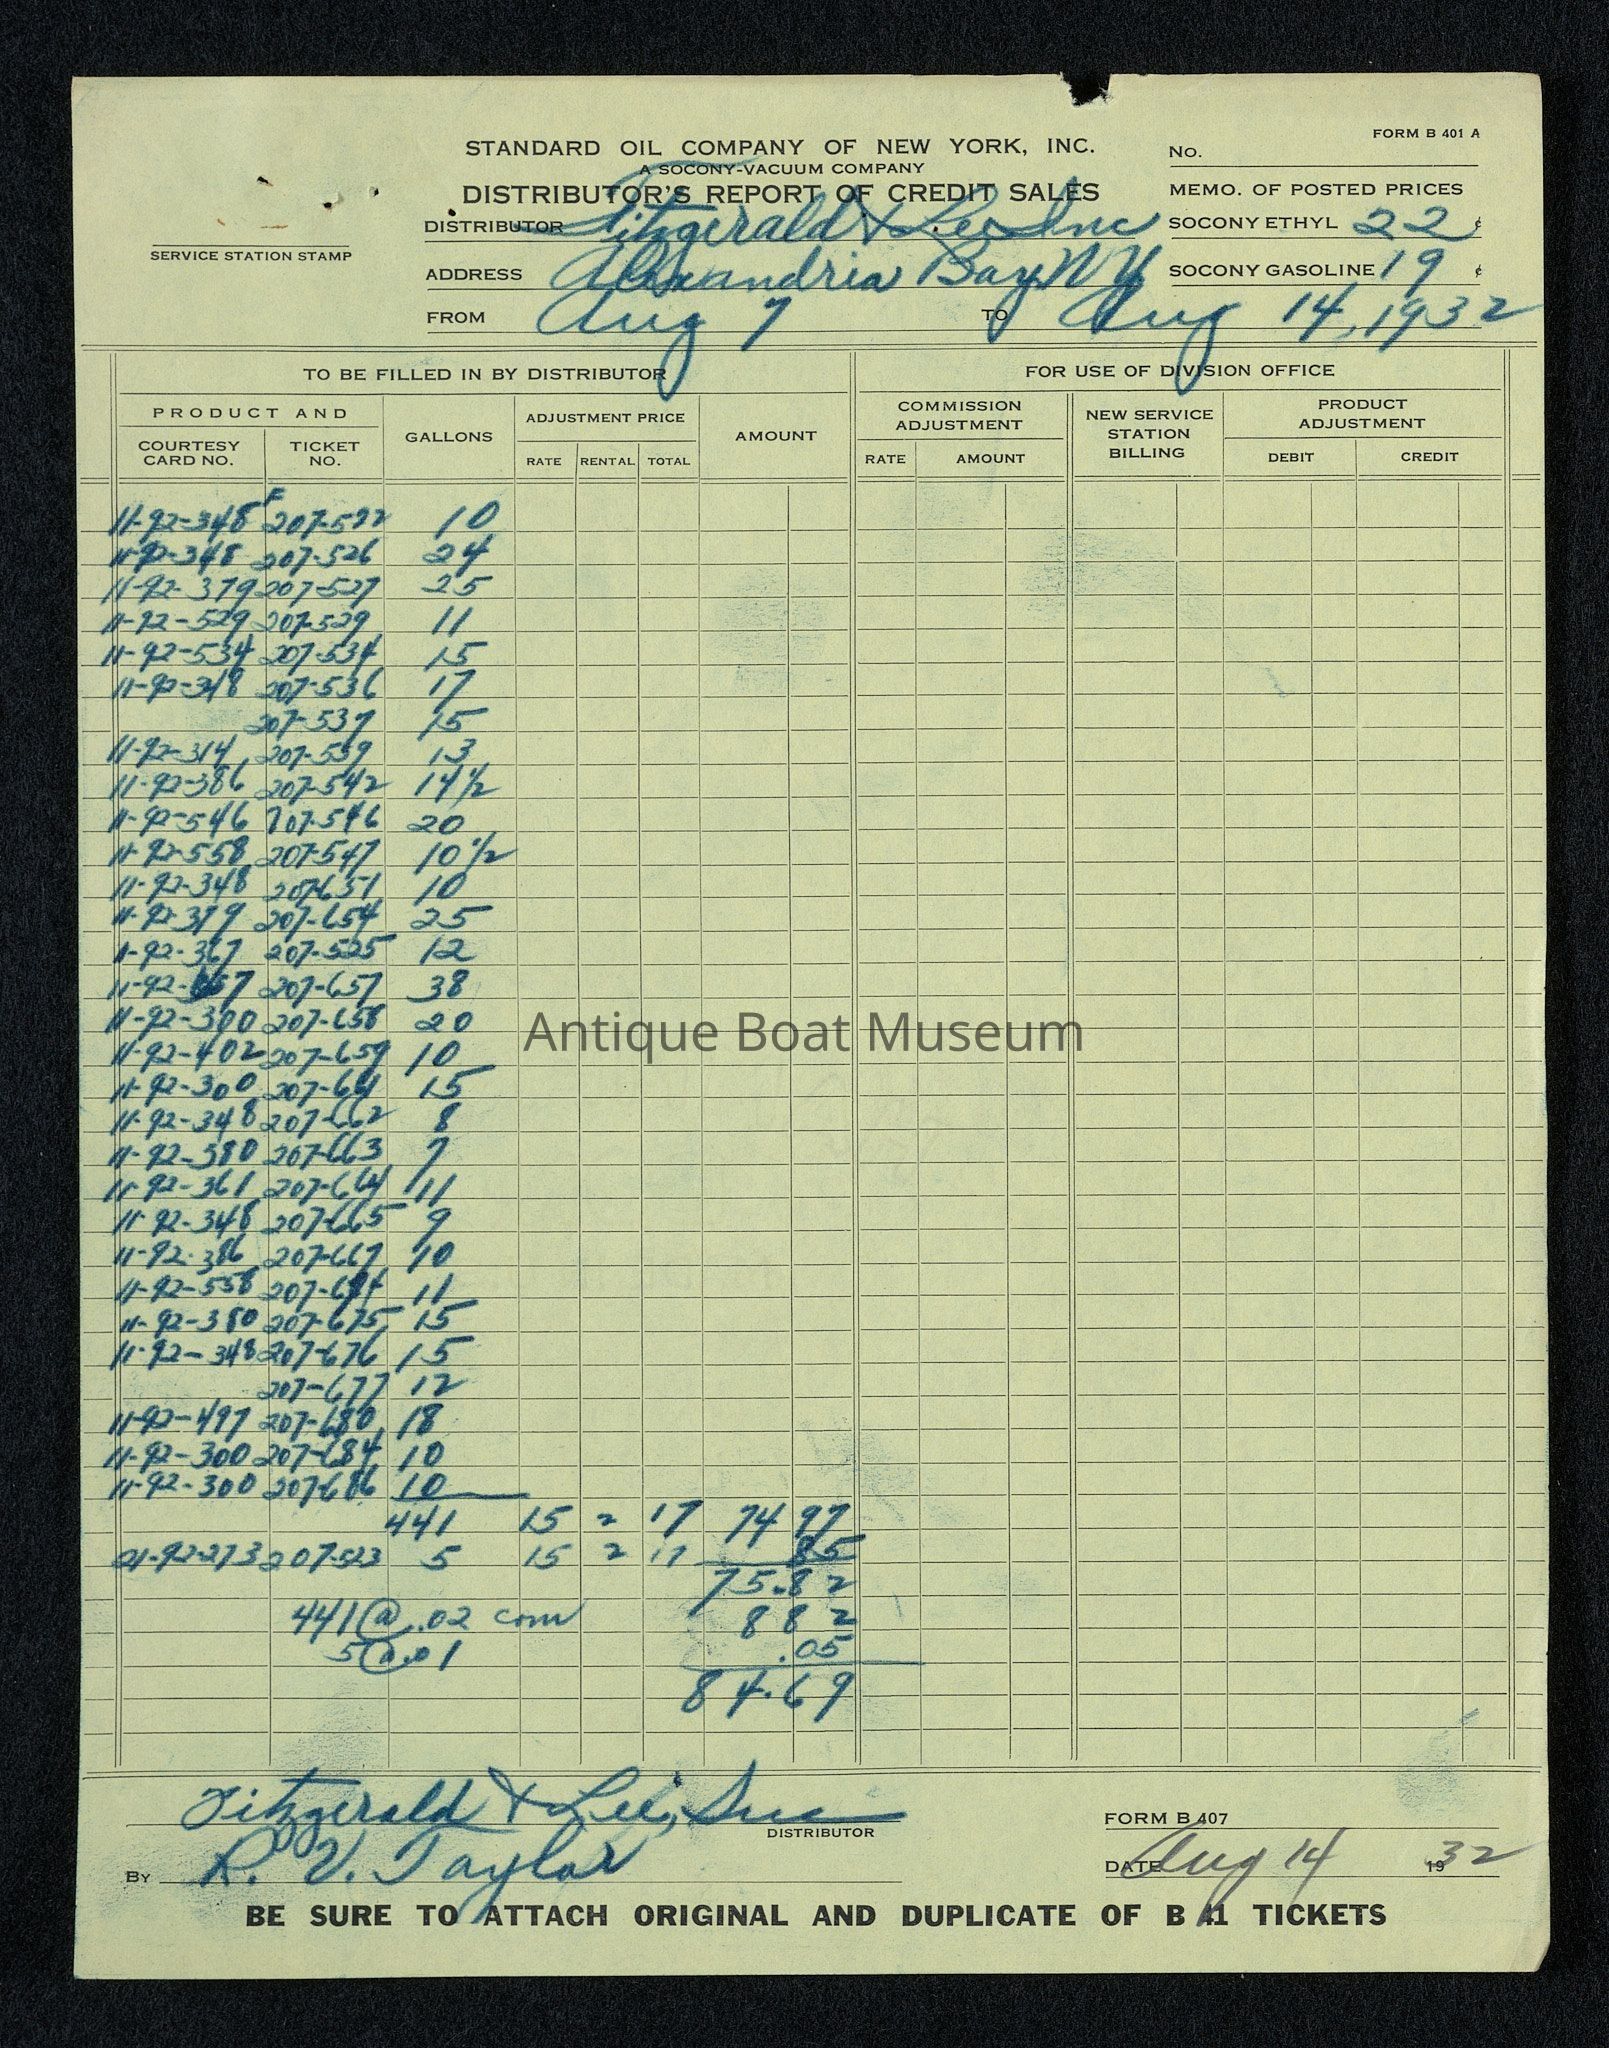 FORM B 401 A
STANDARD OIL COMPANY OF NEW YORK, INC.
No.
A SOCONY-VACUUM COMPANY
MEMO. OF POSTED PRICES
DISTRIBUTOR'S REPORT OF CREDIT SALES
DISTRIBUTOR Fitzgerald & Lee Inc
SOCONY ETHYL 22 ¢
SERVICE STATION STAMP
ADDRESS Alexandria Bay NY
SOCONY GASOLINE 19 ¢
FROM Aug 7 TO Aug 14, 1932
TO BE FILLED IN BY DISTRIBUTOR FOR USE OF DIVISION OFFICE
PRODUCT AND
COURTESY CARD NO. TICKET NO. GALLONS
ADJUSTMENT PRICE
RATE RENTAL TOTAL
AMOUNT
COMMISSION ADJUSTMENT
RATE AMOUNT
NEW SERVICE STATION BILLING
PRODUCT ADJUSTMENT
DEBIT CREDIT
11-92-348 207-522 10
11-92-348 207-526 24
11-92-379 207-527 25
11-92-529 207-529 11
11-92-534 207-534 15
11-92-348 207-536 17
207-537 15
11-92-314 207-539 13
11-92-386 207-542 14 1/2
11-92-546 207-546 20
11-92-558 207-547 10 1/2
11-92-348 207-651 10
11-92-379 207-654 25
11-92-367 207-525 12
11-92-657 207-657 38
11-92-300 207-658 20
11-92-402 207-659 10
11-92-300 207-661 15
11-92-348 207-662 8
11-92-380 207-663 7
11-92-361 207-664 11
11-92-348 207-665 9
11-92-386 207-667 10
11-92-558 207-674 11
11-92-380 207-675 15
11-92-348 207-676 15
207-677 12
11-92-497 207-680 18
11-92-300 207-684 10
11-92-300 207-686 10
441 15 2 17 74 97
01-92-273 207-523 5 15 2 17 85
75.82
441 @ .02 com 8 82
5 @ .01 .05
84.69
Antique Boat Museum
Fitzgerald & Lee, Inc
DISTRIBUTOR
FORM B 407
By R. V. Taylor
DATE Aug 14 1932
BE SURE TO ATTACH ORIGINAL AND DUPLICATE OF B 41 TICKETS